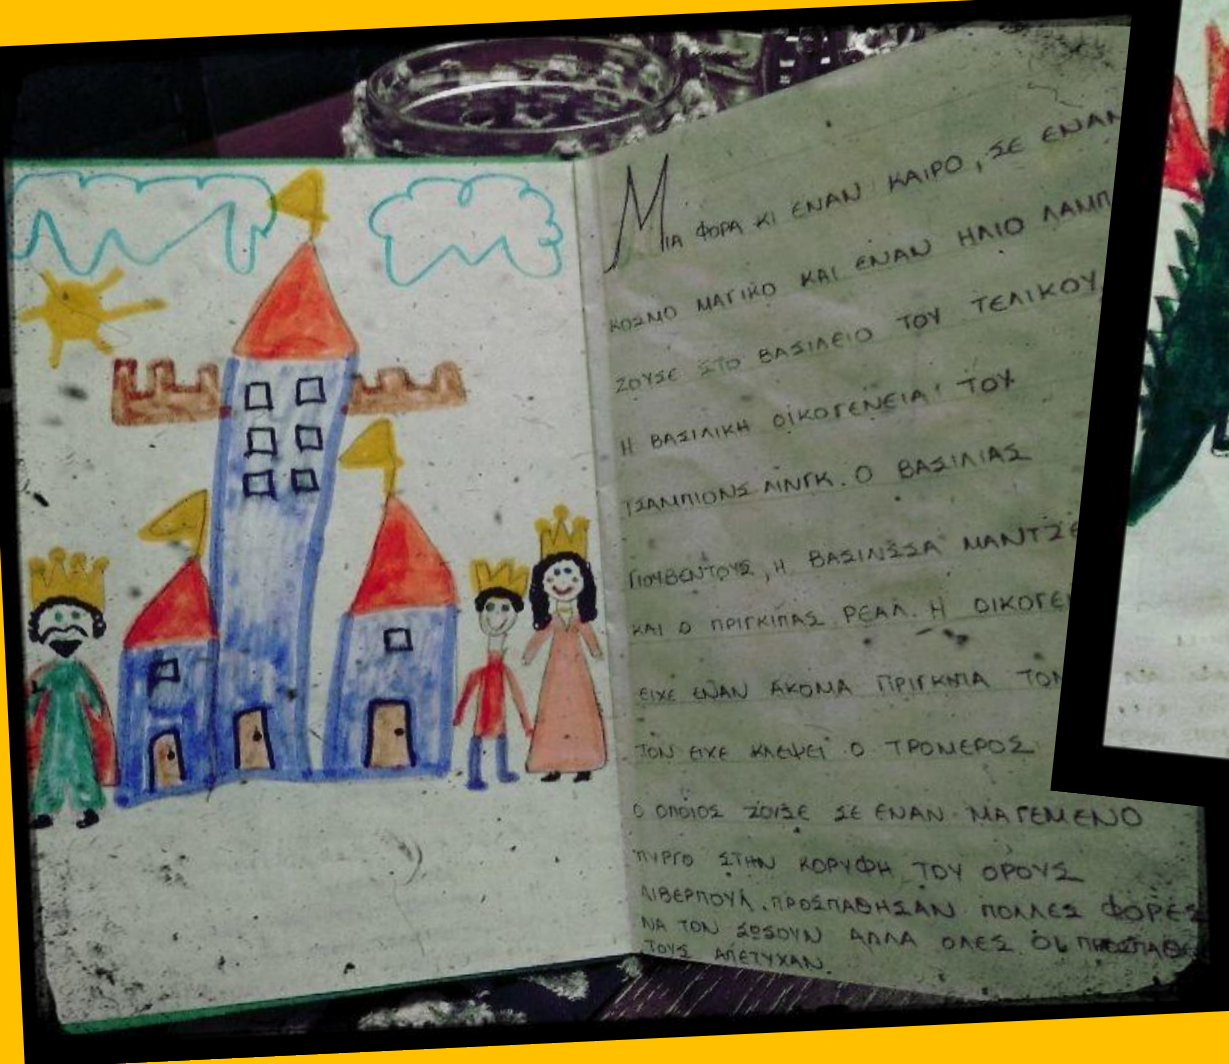 ΜΙΑ ΦΟΡΑ ΚΙ ΕΝΑΝ ΚΑΙΡΟ, ΣΕ ΕΝΑΝ
ΚΟΣΜΟ ΜΑΓΙΚΟ ΚΑΙ ΕΝΑΝ ΗΛΙΟ ΛΑΜΠ
ΖΟΥΣΕ ΣΤΟ ΒΑΣΙΛΕΙΟ ΤΟΥ ΤΕΛΙΚΟΥ
Η ΒΑΣΙΛΙΚΗ ΟΙΚΟΓΕΝΕΙΑ ΤΟΥ
ΤΣΑΜΠΙΟΝΣ ΛΙΝΓΚ. Ο ΒΑΣΙΛΙΑΣ
ΓΙΟΥΒΕΝΤΟΥΣ, Η ΒΑΣΙΛΙΣΣΑ ΜΑΝΤΣΕ
ΚΑΙ Ο ΠΡΙΓΚΙΠΑΣ ΡΕΑΛ. Η ΟΙΚΟΓΕ
ΕΙΧΕ ΕΝΑΝ ΑΚΟΜΑ ΠΡΙΓΚΙΠΑ ΤΟΝ
ΤΟΝ ΕΙΧΕ ΚΛΕΨΕΙ Ο ΤΡΟΜΕΡΟΣ
Ο ΟΠΟΙΟΣ ΖΟΥΣΕ ΣΕ ΕΝΑΝ ΜΑΓΕΜΕΝΟ
ΠΥΡΓΟ ΣΤΗΝ ΚΟΡΥΦΗ ΤΟΥ ΟΡΟΥΣ
ΛΙΒΕΡΠΟΥΛ. ΠΡΟΣΠΑΘΗΣΑΝ ΠΟΛΛΕΣ ΦΟΡΕΣ
ΝΑ ΤΟΝ ΣΩΣΟΥΝ ΑΛΛΑ ΟΛΕΣ ΟΙ ΠΡΟΣΠΑΘΕ
ΤΟΥΣ ΑΠΕΤΥΧΑΝ.